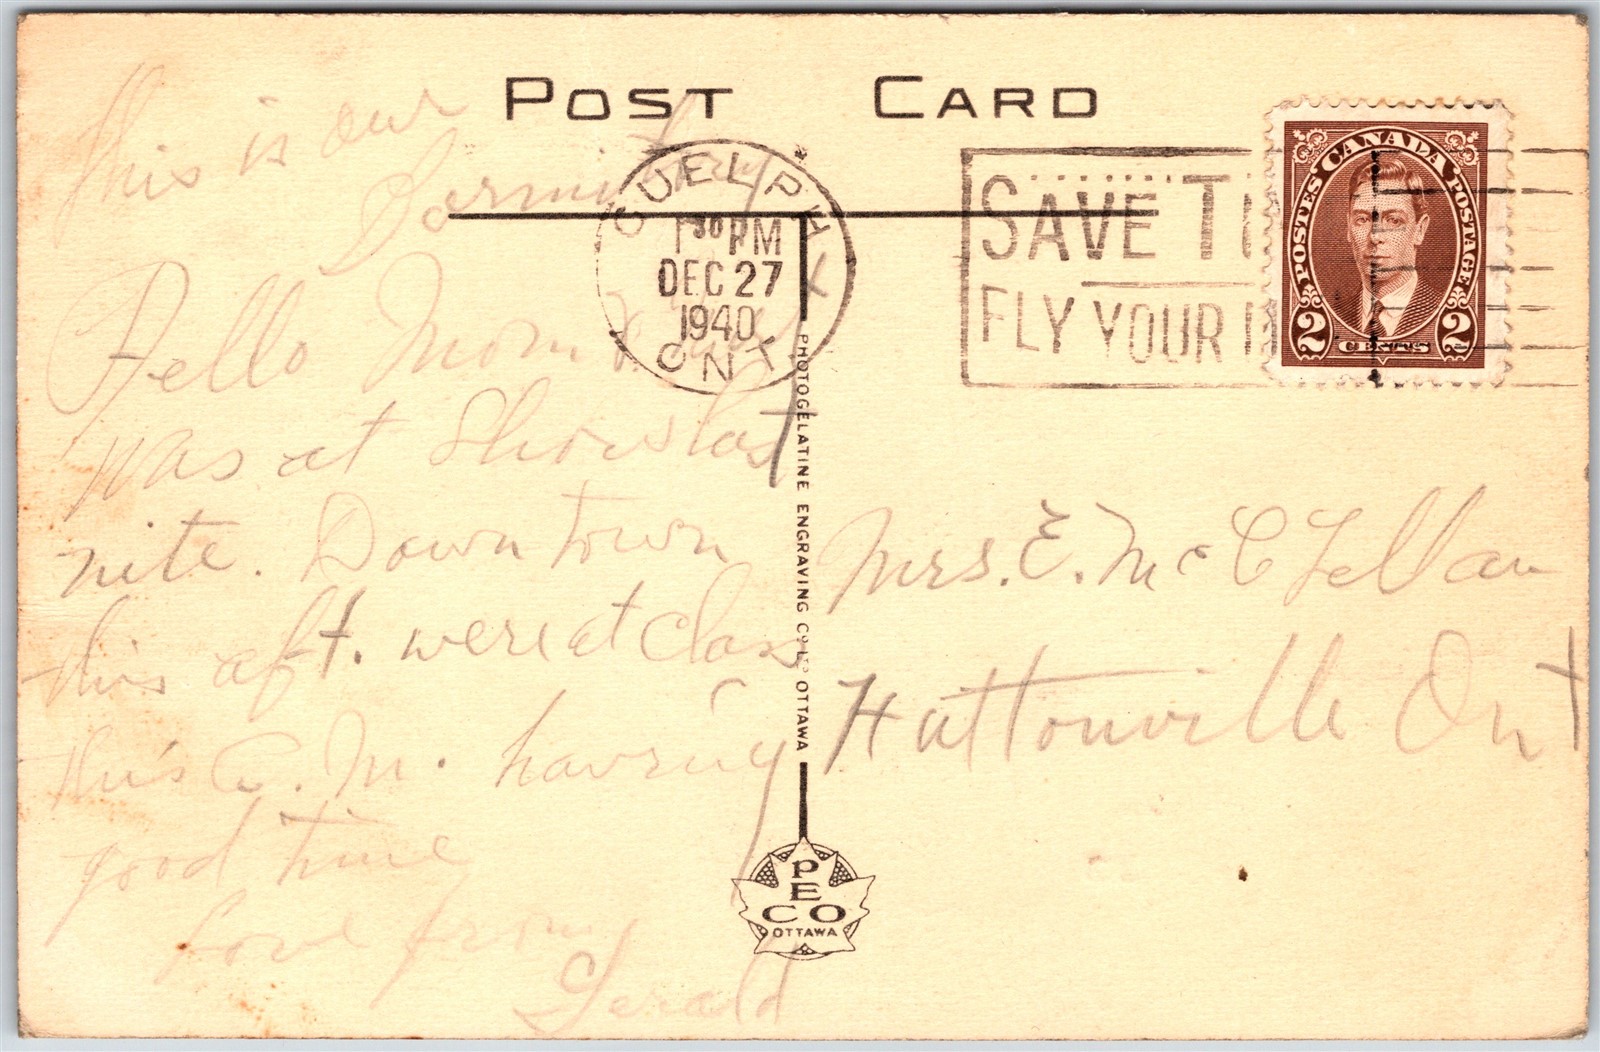 POST CARD
This is our
Dormitory
GUELPH
1 30 PM
DEC 27
1940
ONT
SAVE TI
FLY YOUR
CANADA
POSTES POSTAGE
2 CENTS 2
Hello Mom
was at Show last
nite. Down town
this aft. were at class
this A.M. having
good time
Love from
Gerald
PHOTOGELATINE ENGRAVING CO. LTD. OTTAWA
Mrs. E. McClellan
Huttonville Ont
PECO
OTTAWA